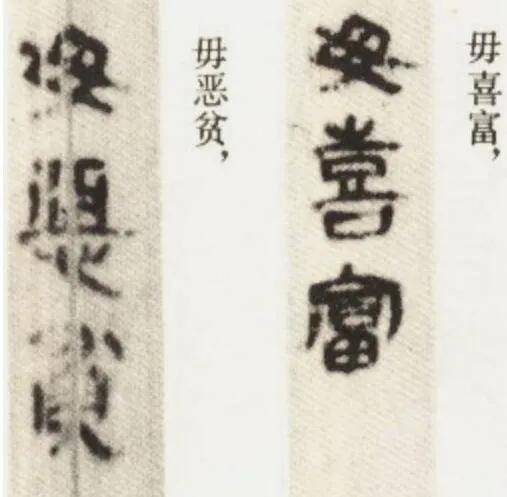 毋喜富
毋喜富，
毋恶贫
毋恶贫，